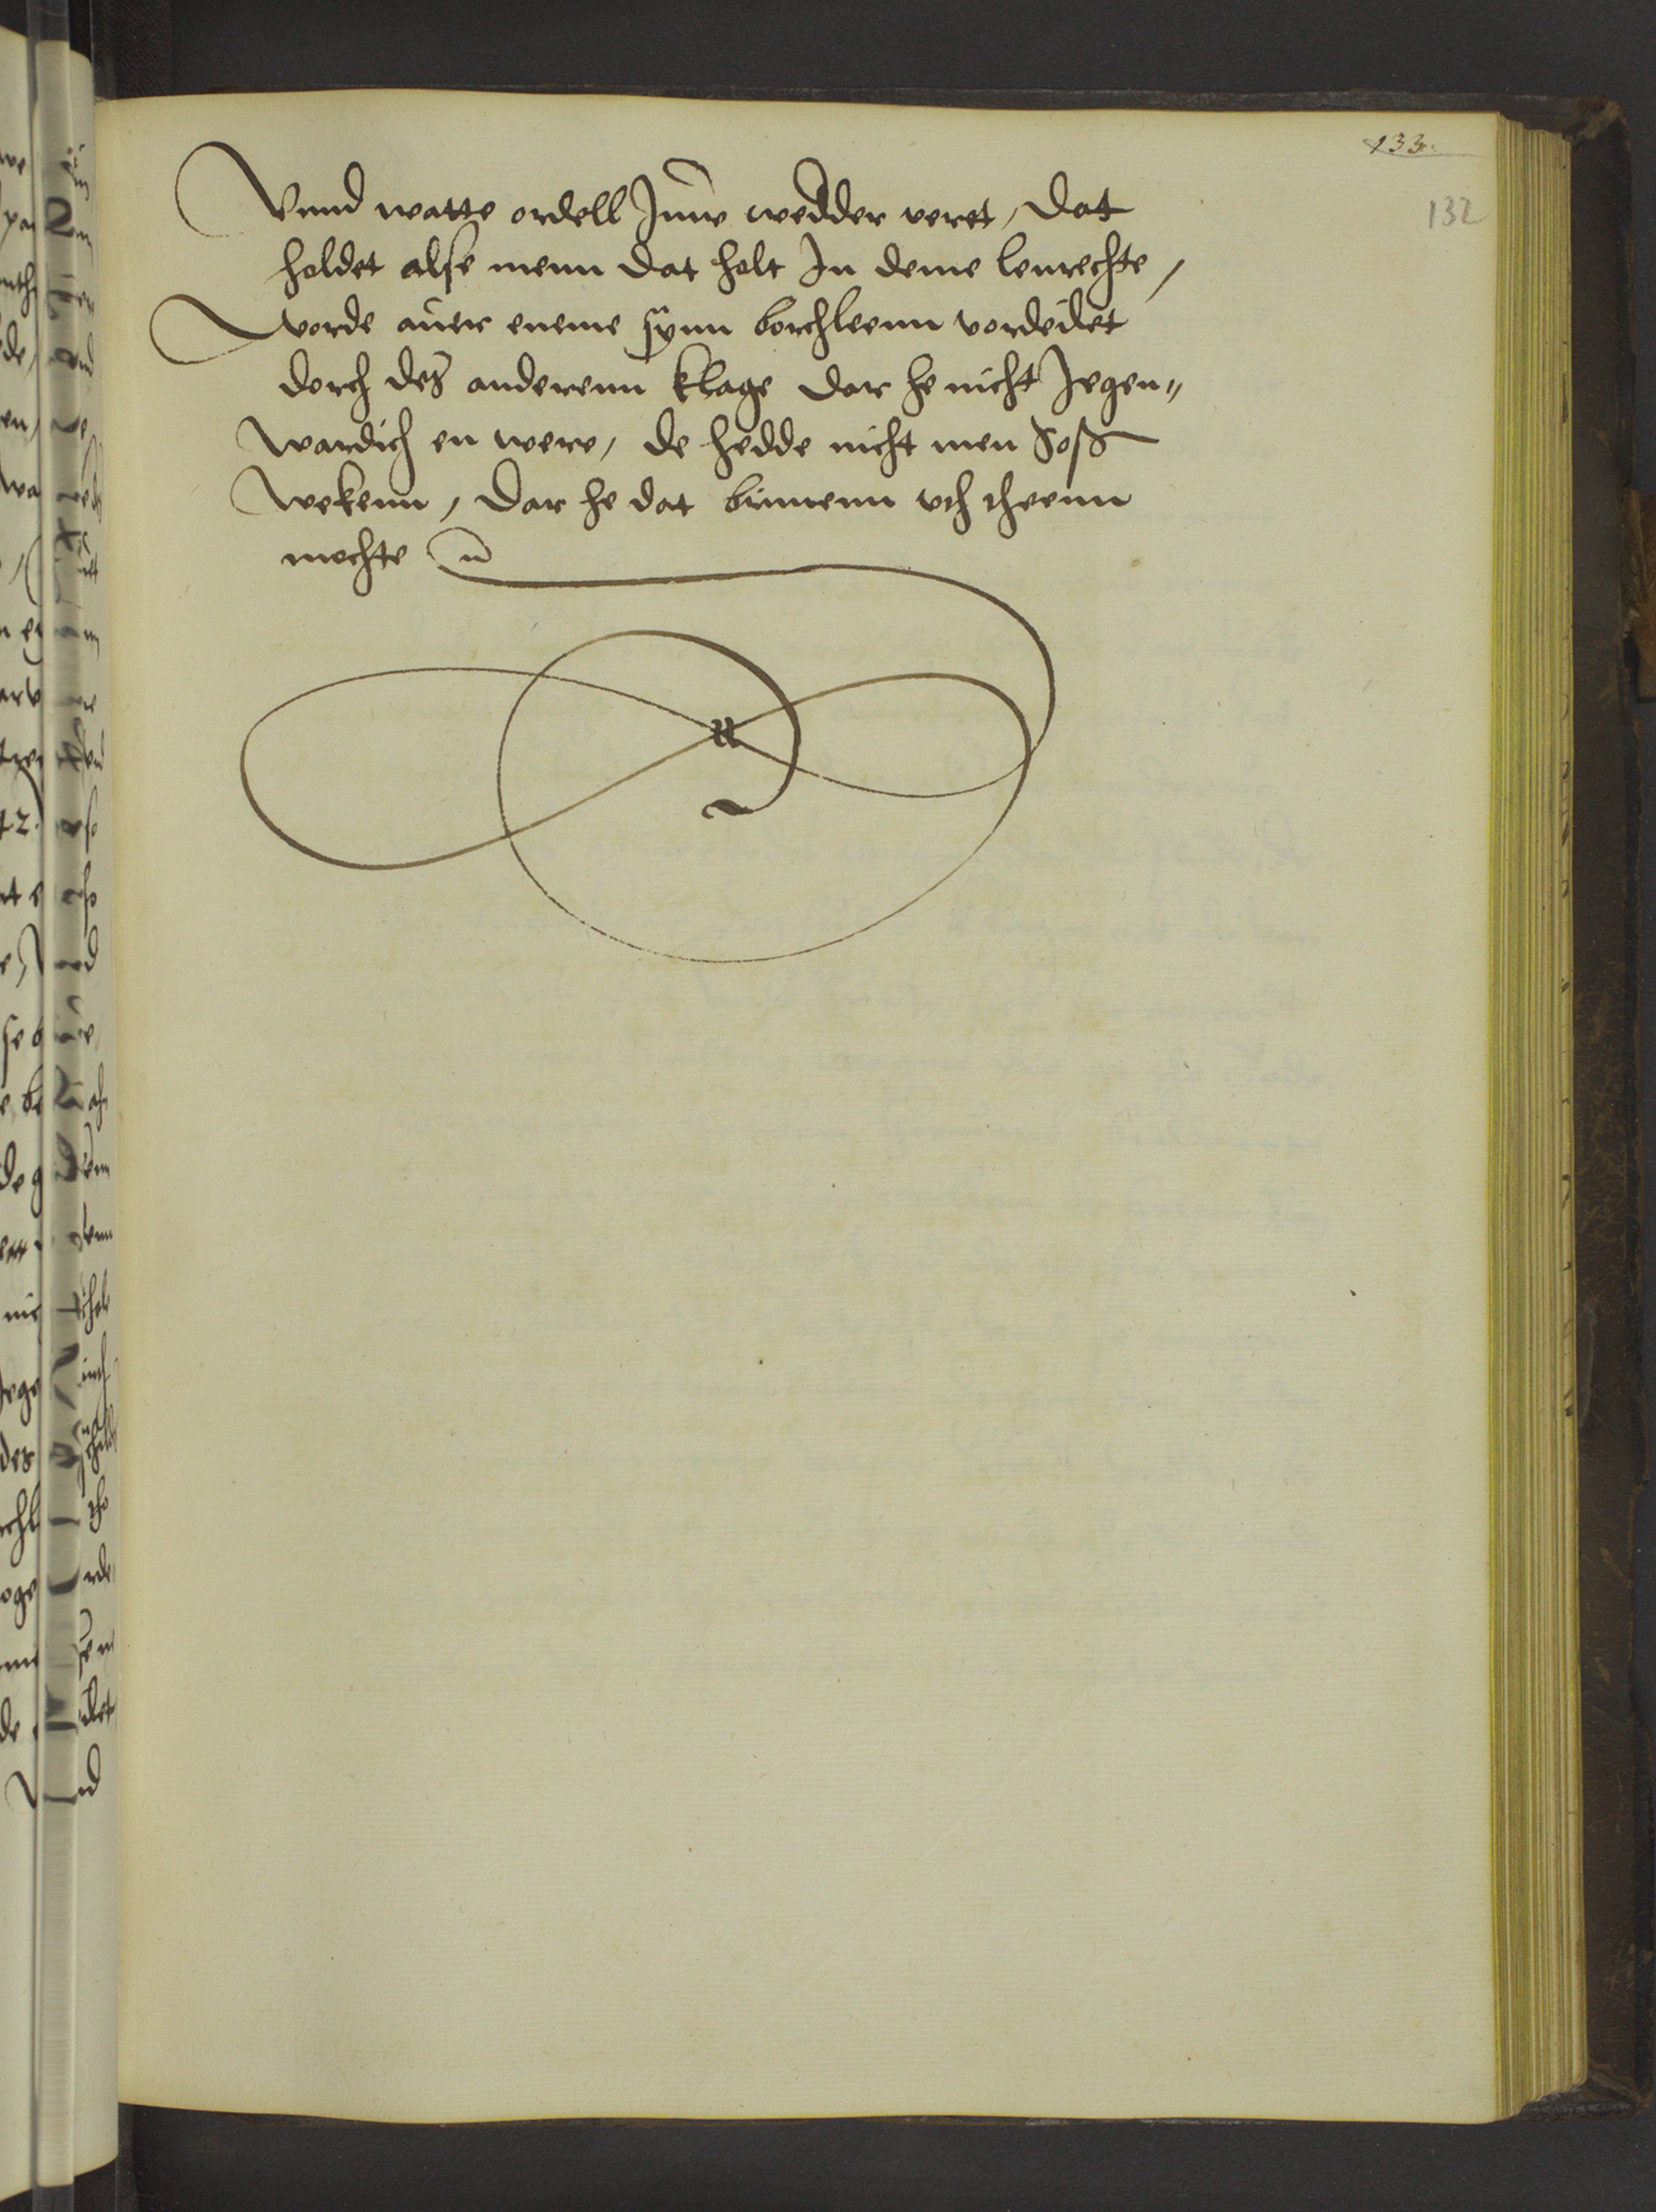 133.
132
Vnnd watte ordell Juwe wedder veret, Dat
holdet alse menn dat holt Jn deme lenrechte,
Worde auer eneme synn borchleenn vordeilet
dorch des anderenn klage dar he nicht Jegen„
wardich en were, de hedde nicht men Soß
wekenn, Dar he dat binnenn vth theenn
mochte